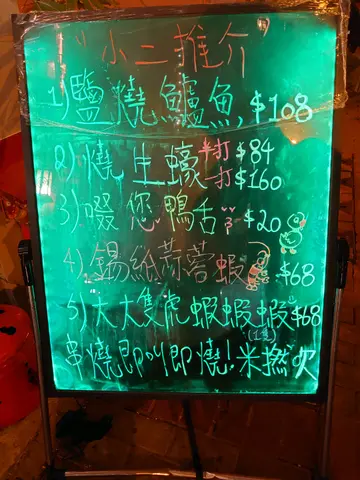 "小二推介"
1) 鹽燒鱸魚 $108
2) 燒生蠔 半打 $84
一打 $160
3) 啜您鴨舌 $20
4) 錫紙蒜蓉蝦 $68
5) 大大隻虎蝦蝦蝦 $68
串燒即叫即燒! 米撚吹